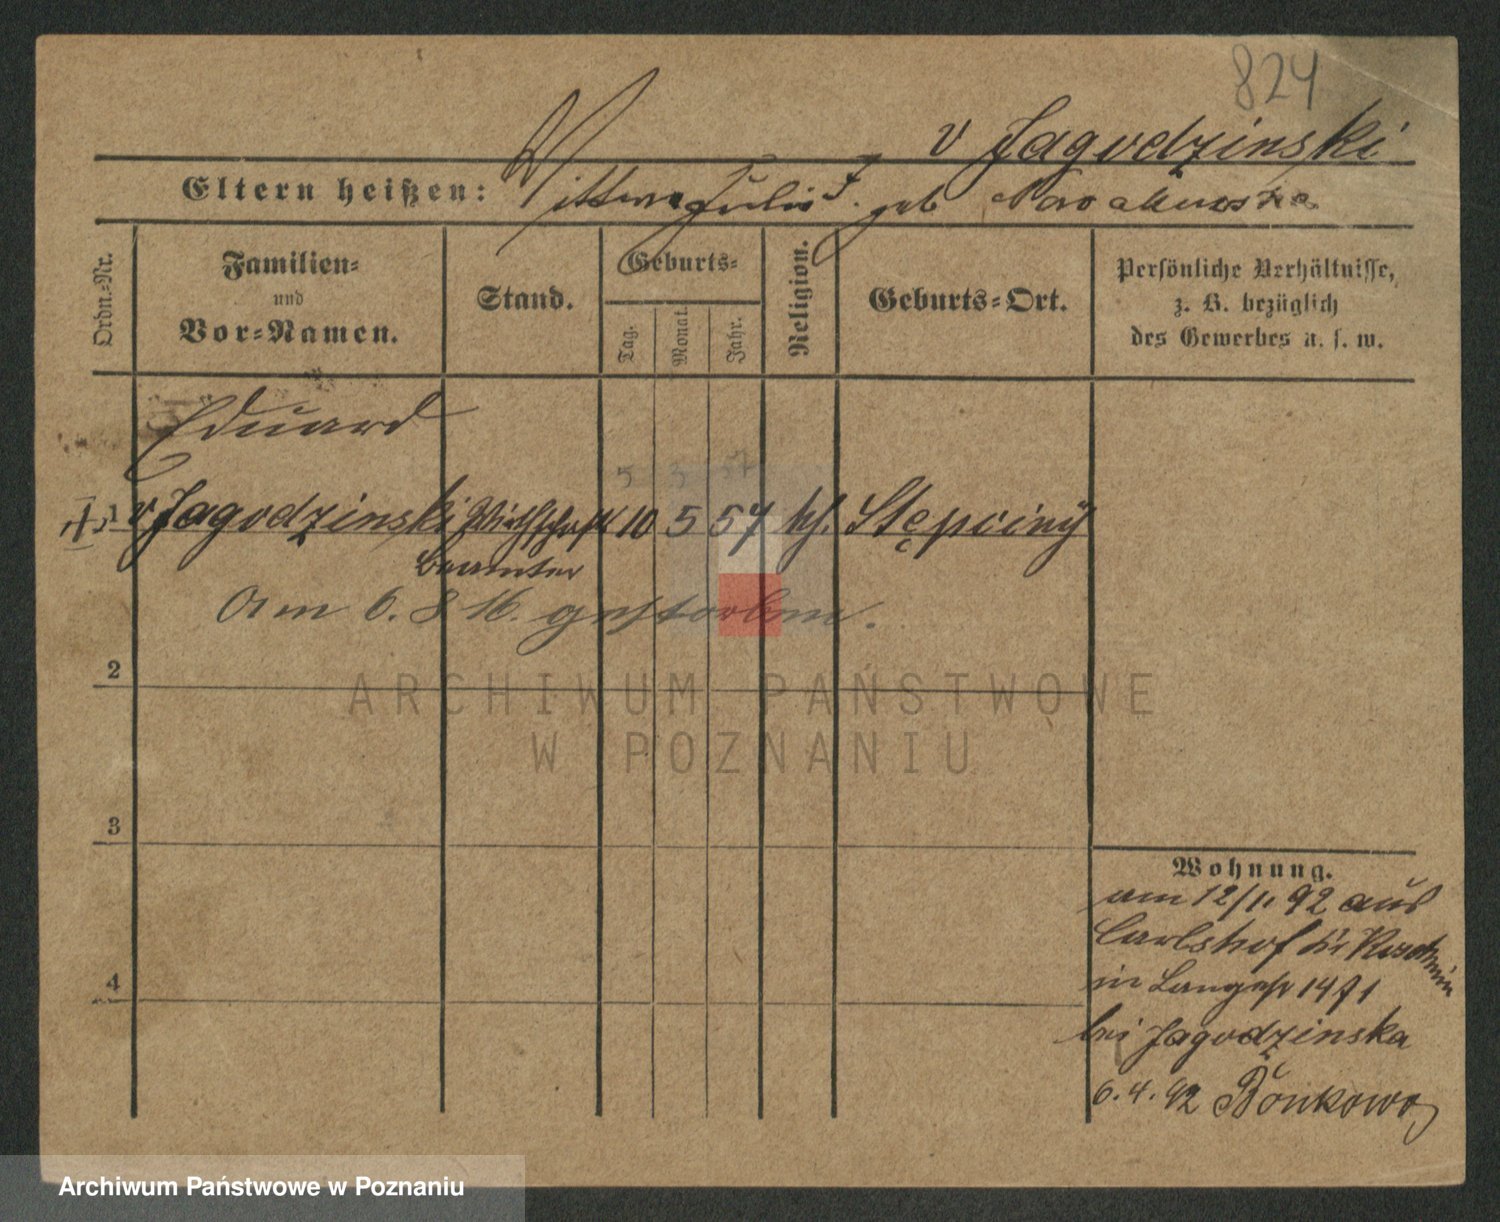 824
v Jagodzinski
Eltern heißen: Wittwe Julie J. geb
Ordn.=Nr.
Familien=
und
Vor=Namen.
Stand.
Geburts=
Tag.
Monat.
Jahr.
Religion.
Geburts=Ort.
Persönliche Verhältnisse,
z. B. bezüglich
des Gewerbes u. s. w.
Eduard
5 3 57
1 v Jagodzinski Wirthschaft 10 5 57 kh. Stępociny
Beamter
Am 6. 8 16. gestorben.
2
3
4
ARCHIWUM PAŃSTWOWE
W POZNANIU
Wohnung.
am 12/1. 92 aus
Carlshof Kr
in Langestr 14 I
bei Jagodzinska
6. 4. 92 Bonkowo
Archiwum Państwowe w Poznaniu